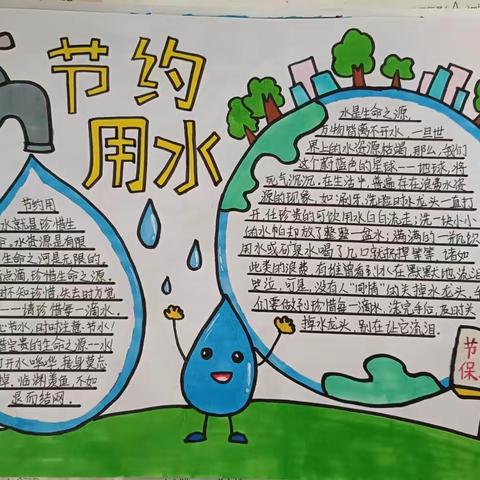 节约
用水
节约用
水就是珍惜生
命,水资源是有限
生命之河是无限的。
点滴,珍惜生命之源。
时不知珍惜,失去时方觉
——请珍惜每一滴水。
节水,时时注意节水!
惜宝贵的生命之源--水
打开水哗华
掉,临渊羡鱼,不如
退而结网。
水是生命之源,
万物皆离不开水,一旦世
界上的水资源枯竭,那么,我们
这个蔚蓝色的星球--地球,将
死气沉沉。在生活中,普遍存在浪费水资
源的现象,如涮牙、洗脸时水龙头一直打
开,任珍贵的可饮用水白白流走;洗一块小小
的水帕却放了整整一盆水;满满的一瓶饮
用水或矿泉水喝了几口就扔掉等等,诸如
此类的浪费,有谁留看到水在默默地流泪
哭泣,可是,没有人"同情"的关掉水龙头,
们要做到珍惜每一滴水,洗完手后,及时关
掉水龙头,别在让它流泪。
节
保